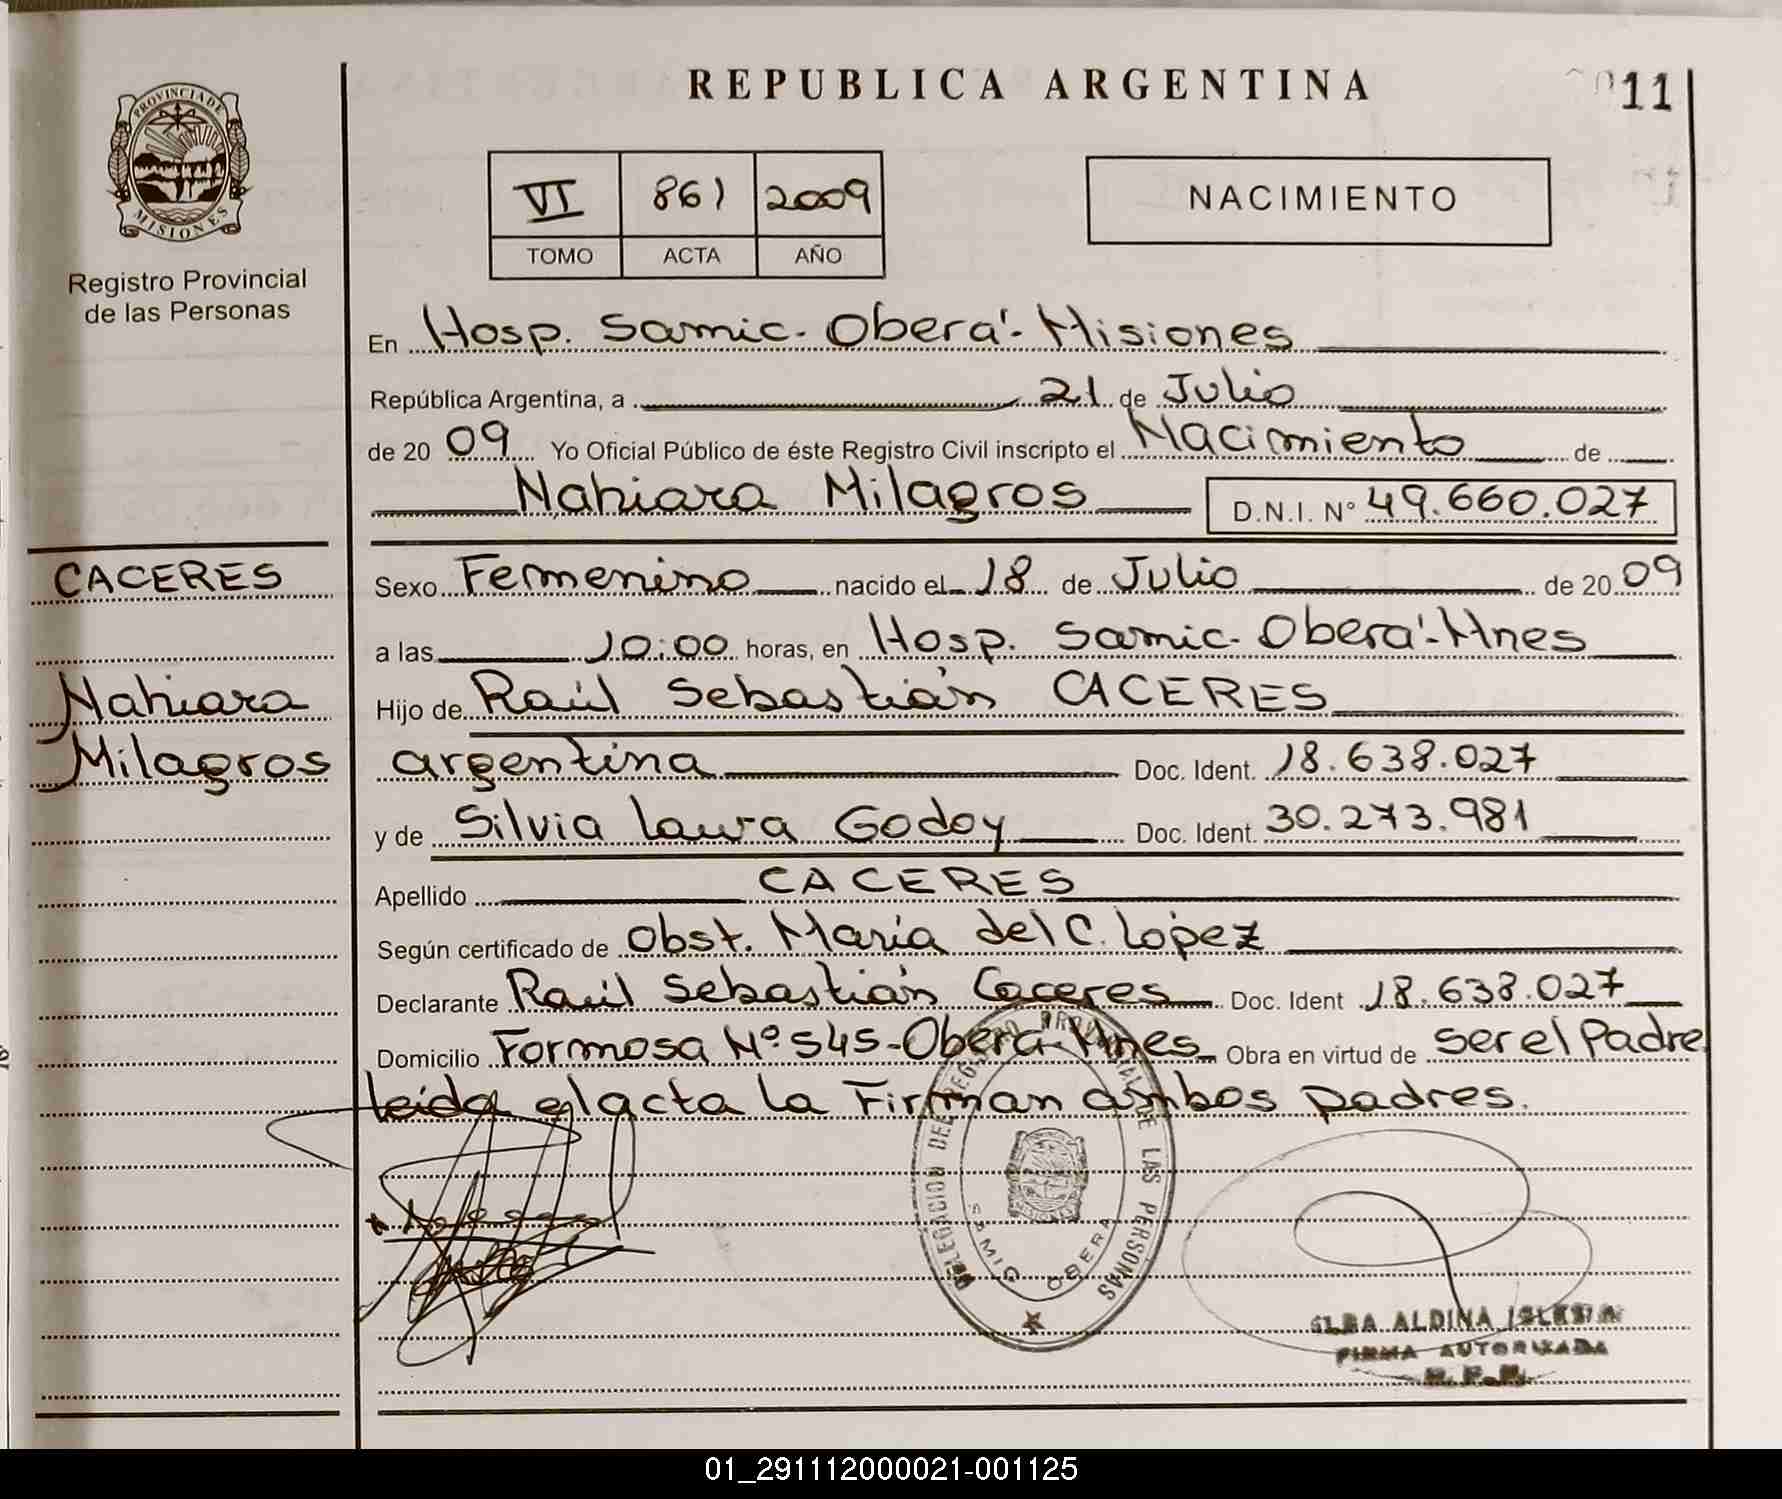 REPUBLICA ARGENTINA
11
PROVINCIA DE
MISIONES
Registro Provincial
de las Personas
VI 861 2009
TOMO ACTA AÑO
NACIMIENTO
En Hosp. Samic. Oberá - Misiones
República Argentina, a 21 de Julio
de 20 09 Yo Oficial Público de éste Registro Civil inscripto el Nacimiento de
Nahiara Milagros D.N.I. Nº 49.660.027
CACERES
Nahiara
Milagros
Sexo Femenino nacido el 18 de Julio de 20 09
a las 10:00 horas, en Hosp. Samic. Oberá - Mnes
Hijo de Raúl Sebastián CACERES
argentina Doc. Ident. 18.638.027
y de Silvia Laura Godoy Doc. Ident. 30.273.981
Apellido CACERES
Según certificado de Obst. María del C. Lopez
Declarante Raúl Sebastián Caceres Doc. Ident 18.638.027
Domicilio Formosa Nº 545 - Oberá - Mnes Obra en virtud de ser el Padre
leída el acta la Firman ambos padres.
DELEGACION DEL REGISTRO PROVINCIAL DE LAS PERSONAS
SAMIC OBERA
ELBA ALDINA IGLESIA
FIRMA AUTORIZADA
01_291112000021-001125